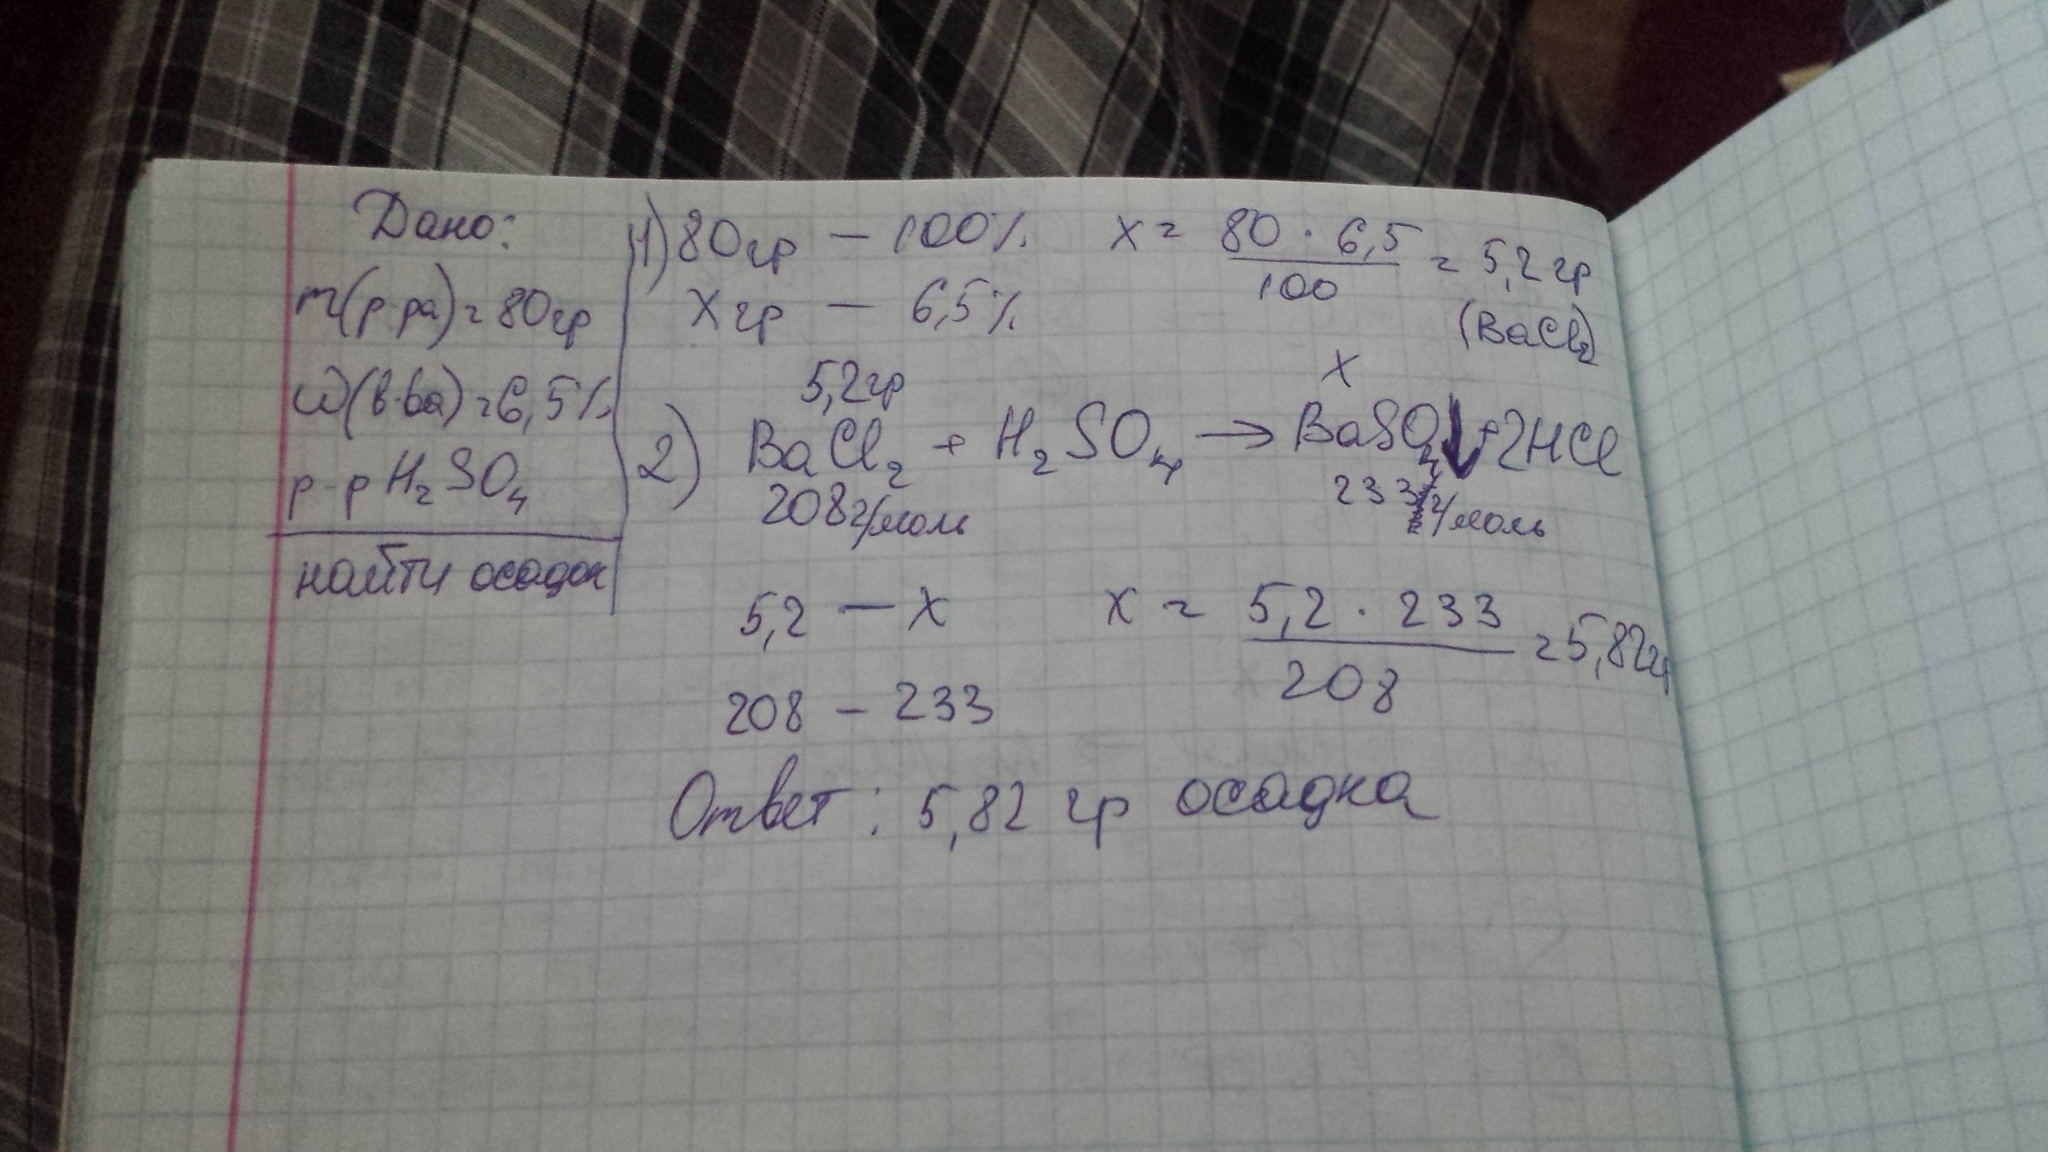 Дано:
m(р-ра) = 80гр
ω(в-ва) = 6,5%
р-р H₂SO₄
найти осадок
1) 80гр — 100% x = 80 · 6,5 / 100 = 5,2 гр
xгр — 6,5% (BaCl₂)
5,2гр x
2) BaCl₂ + H₂SO₄ → BaSO₄↓ + 2HCl
208г/моль 233г/моль
5,2 — x x = 5,2 · 233 / 208 = 5,82гр
208 — 233
Ответ: 5,82 гр осадка